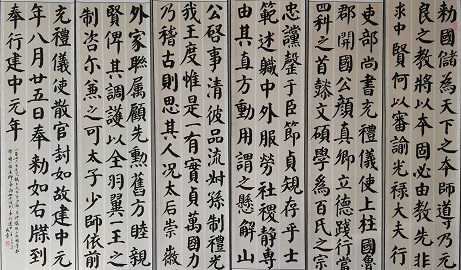 勅國儲為天下之本師導乃元
良之教將以本固必由教先非
求中賢何以審諭光祿大夫行
吏部尚書充禮儀使上柱國魯
郡開國公顏真卿立德踐行當
四科之首懿文碩學為百氏之宗
忠讜罄于臣節貞規存乎士
範述職中外服勞社稷静專
由其直方動用謂之懸解山
公啓事清彼品流叔孫制禮光
我王度惟是一有實貞萬國力
乃稽古則思其人况太后崇徽
外家聯属顧先勲舊方睦親
賢俾其調護以全羽翼一王之
制咨尔兼之可太子少師依前
充禮儀使散官封如故建中元
年八月廿五日奉勅如右牒到
奉行建中元年